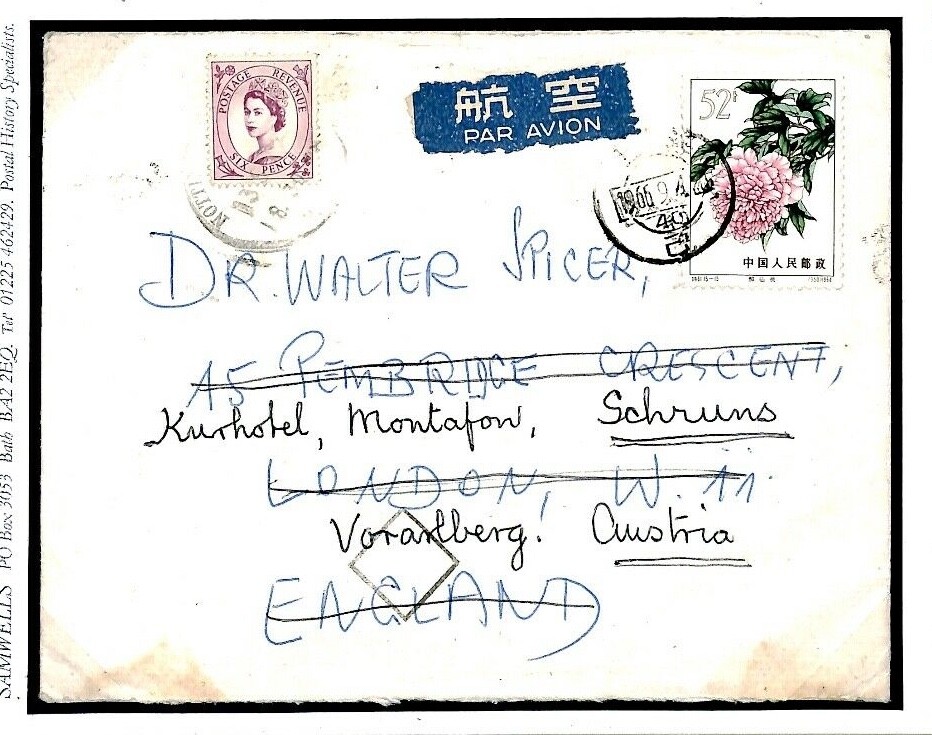 SAMWELLS PO Box 3053 Bath BA2 2EQ. Tel 01225 462429. Postal History Specialists.
POSTAGE REVENUE
SIX PENCE
NOTTI
航空
PAR AVION
52
1966.9.
中国人民邮政
DR. WALTER SPICER,
15 PEMBRIDGE CRESCENT,
Kurhotel, Montafon, Schruns
LONDON, W. 11.
Vorarlberg. Austria
ENGLAND